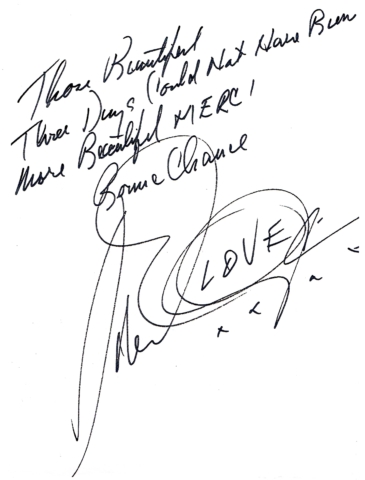 Those Beautiful
Three Days Could Not Have Been
More Beautiful MERCI
Bonne Chance
LOVE
x x